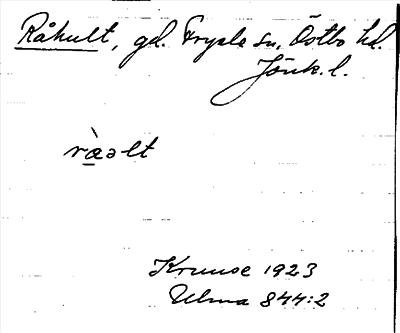 Råhult, gd. Fryele sn, Östbo hd.
Jönk. l.
ràəlt
Kruuse 1923
Ulma 844:2